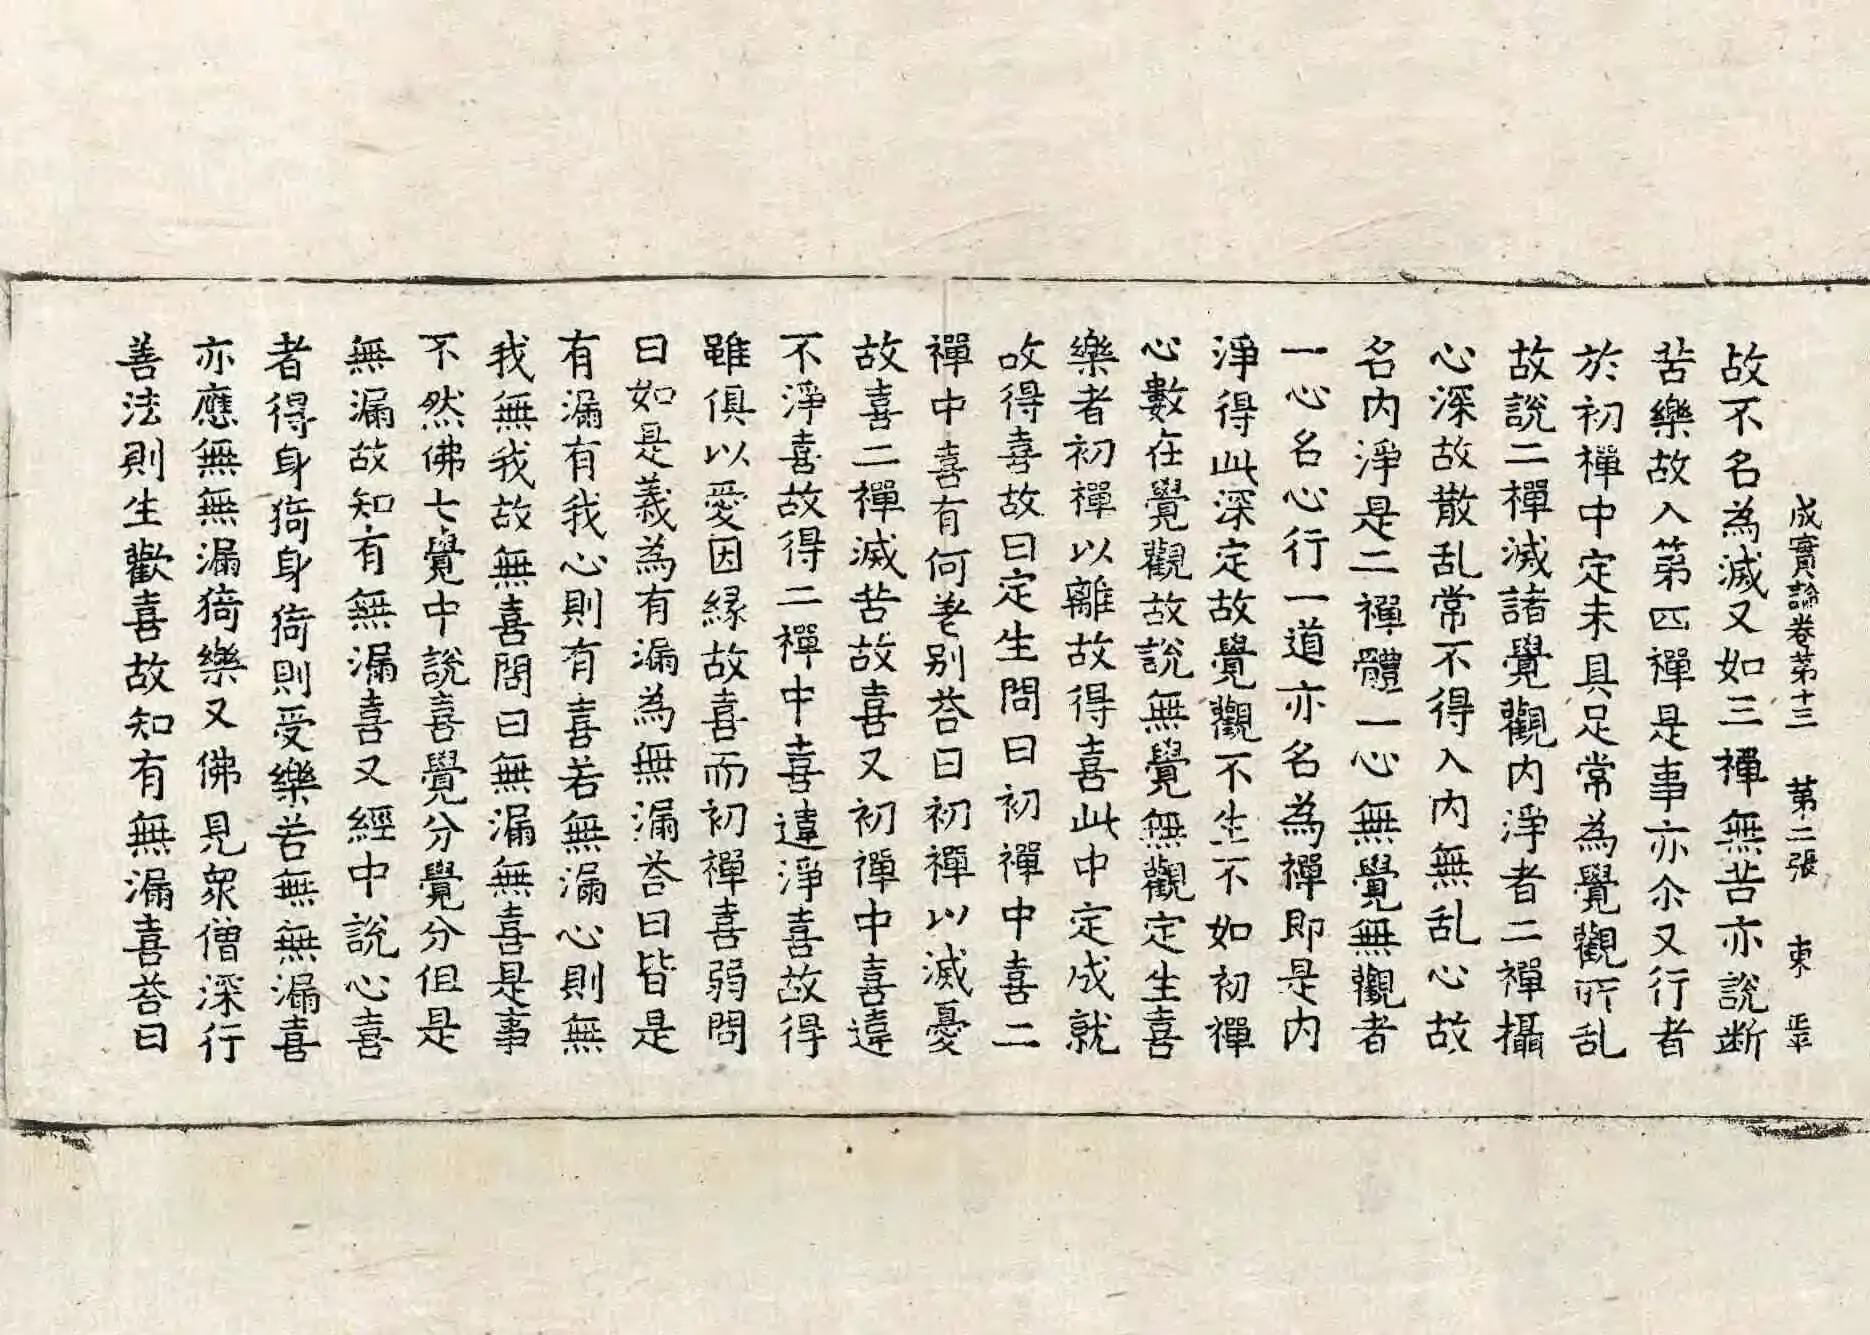 成實論卷第十三　第二張　東　平
故不名為滅又如三禪無苦亦說斷
苦樂故入第四禪是事亦尒又行者
於初禪中定未具足常為覺觀所乱
故說二禪滅諸覺觀內淨者二禪攝
心深故散乱常不得入內無乱心故
名內淨是二禪體一心無覺無觀者
一心名心行一道亦名為禪即是內
淨得此深定故覺觀不生不如初禪
心數在覺觀故說無覺無觀定生喜
樂者初禪以離故得喜此中定成就
故得喜故曰定生問曰初禪中喜二
禪中喜有何差別荅曰初禪以滅憂
故喜二禪滅苦故喜又初禪中喜違
不淨喜故得二禪中喜違淨喜故得
雖俱以愛因緣故喜而初禪喜弱問
曰如是義為有漏為無漏荅曰皆是
有漏有我心則有喜若無漏心則無
我無我故無喜問曰無漏無喜是事
不然佛七覺中說喜覺分覺分但是
無漏故知有無漏喜又經中說心喜
者得身猗身猗則受樂若無無漏喜
亦應無無漏猗樂又佛見衆僧深行
善法則生歡喜故知有無漏喜荅曰